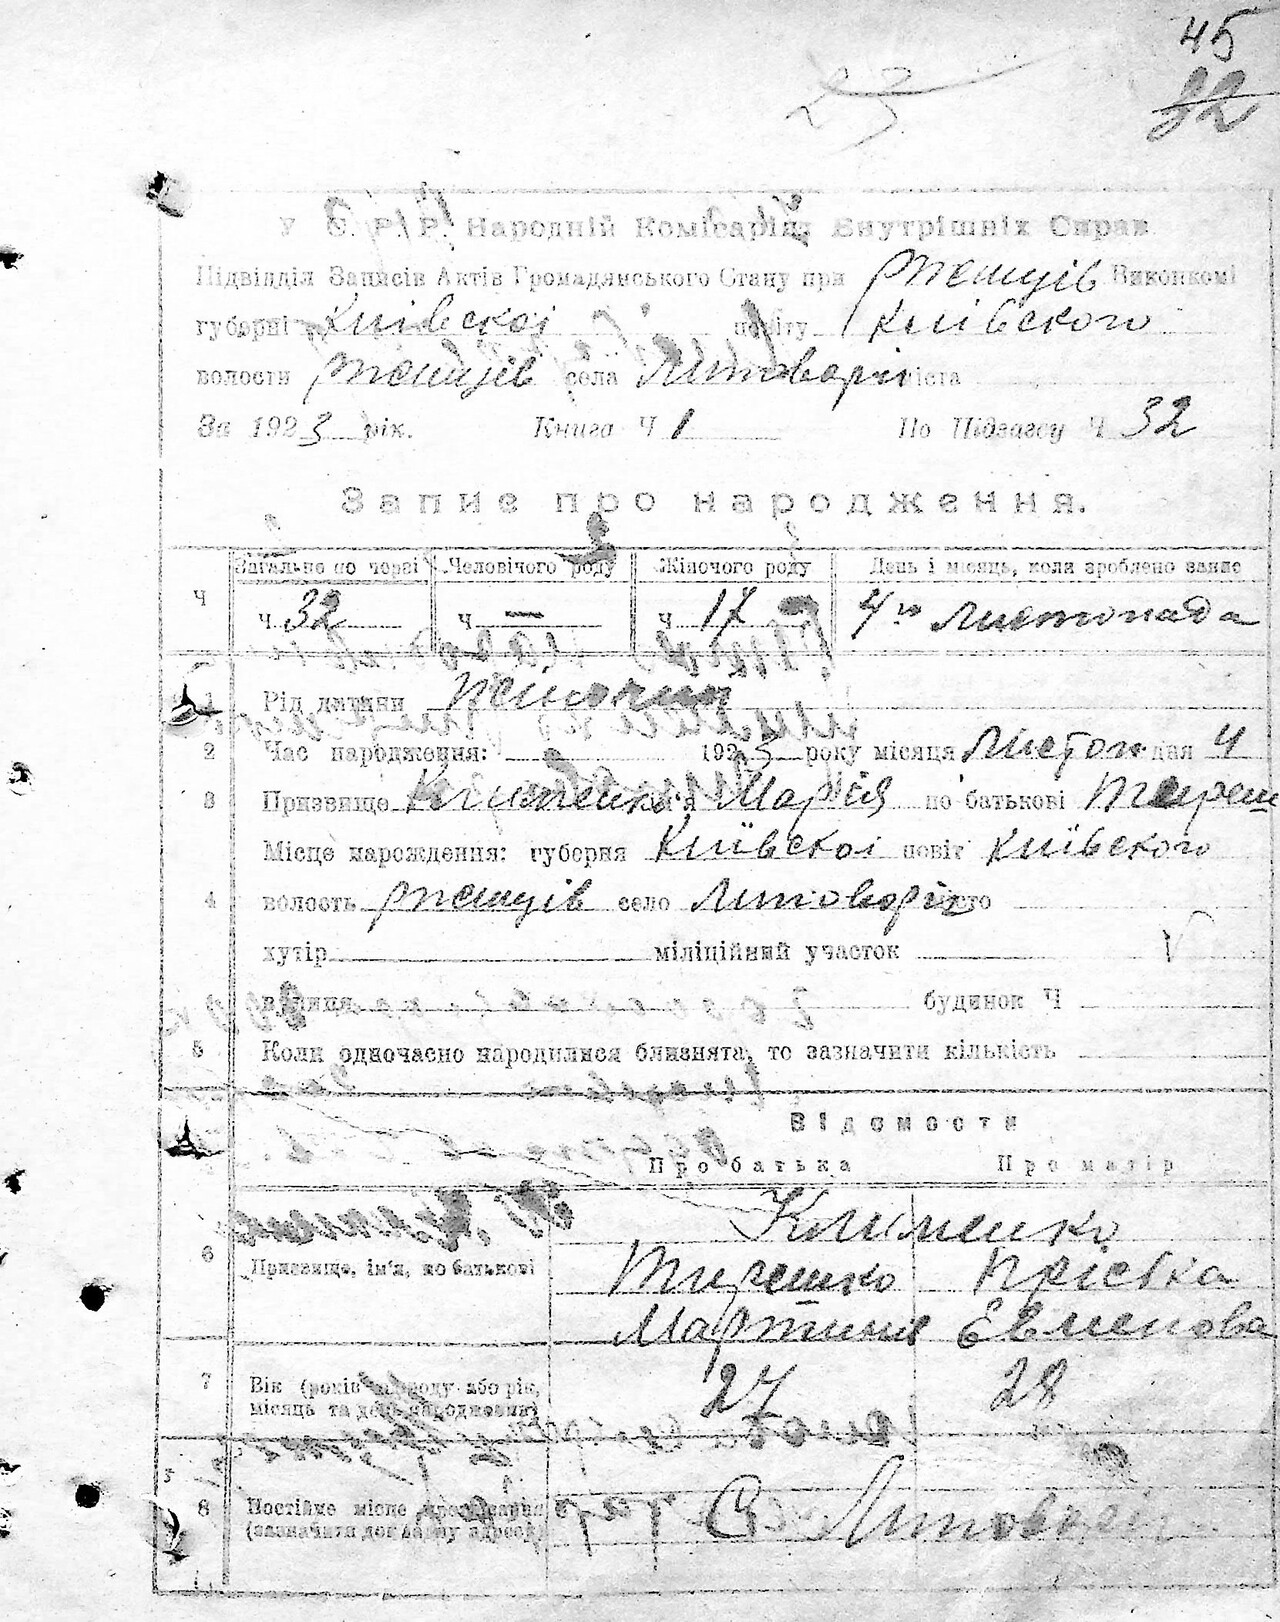 45
32
23
У. С. Р. Р. Народній Комісаріят Внутрішніх Справ
Підвідділ Записів Актів Громадянського Стану при Ржищів Виконкомі
губерні Київскоі повіту Київского
волости Ржищів села Липоверіг міста
За 1923 рік. Книга Ч 1 По Підзагсу Ч 32
Запис про народження.
Ч Загально по черзі Человічого роду Жіночого роду День і місяць, коли зроблено запис
ч. 32 ч — ч 17 4го Листопада
1 Рід дитини жіночий
2 Час народження: 1923 року місяця Листоп. дня 4
3 Призвище Клименко ім'я Марія по батькові Тиреш
Місце народження: губерня Київскоі повіт Київского
4 волость Ржищів село Липоверіг місто
хутір міліційний участок V
вулиця будинок Ч
5 Коли одночасно народилися близнята, то зазначити кількість
Відомости
Про батька Про матір
Клименко
6 Призвище, ім'я, по батькові Тирешко Прісека
Мартинів Евменова
7 Вік (років від роду або рік, місяць та день народження) 27 28
8 Постійне місце проживання (зазначити докладну адресу) С.